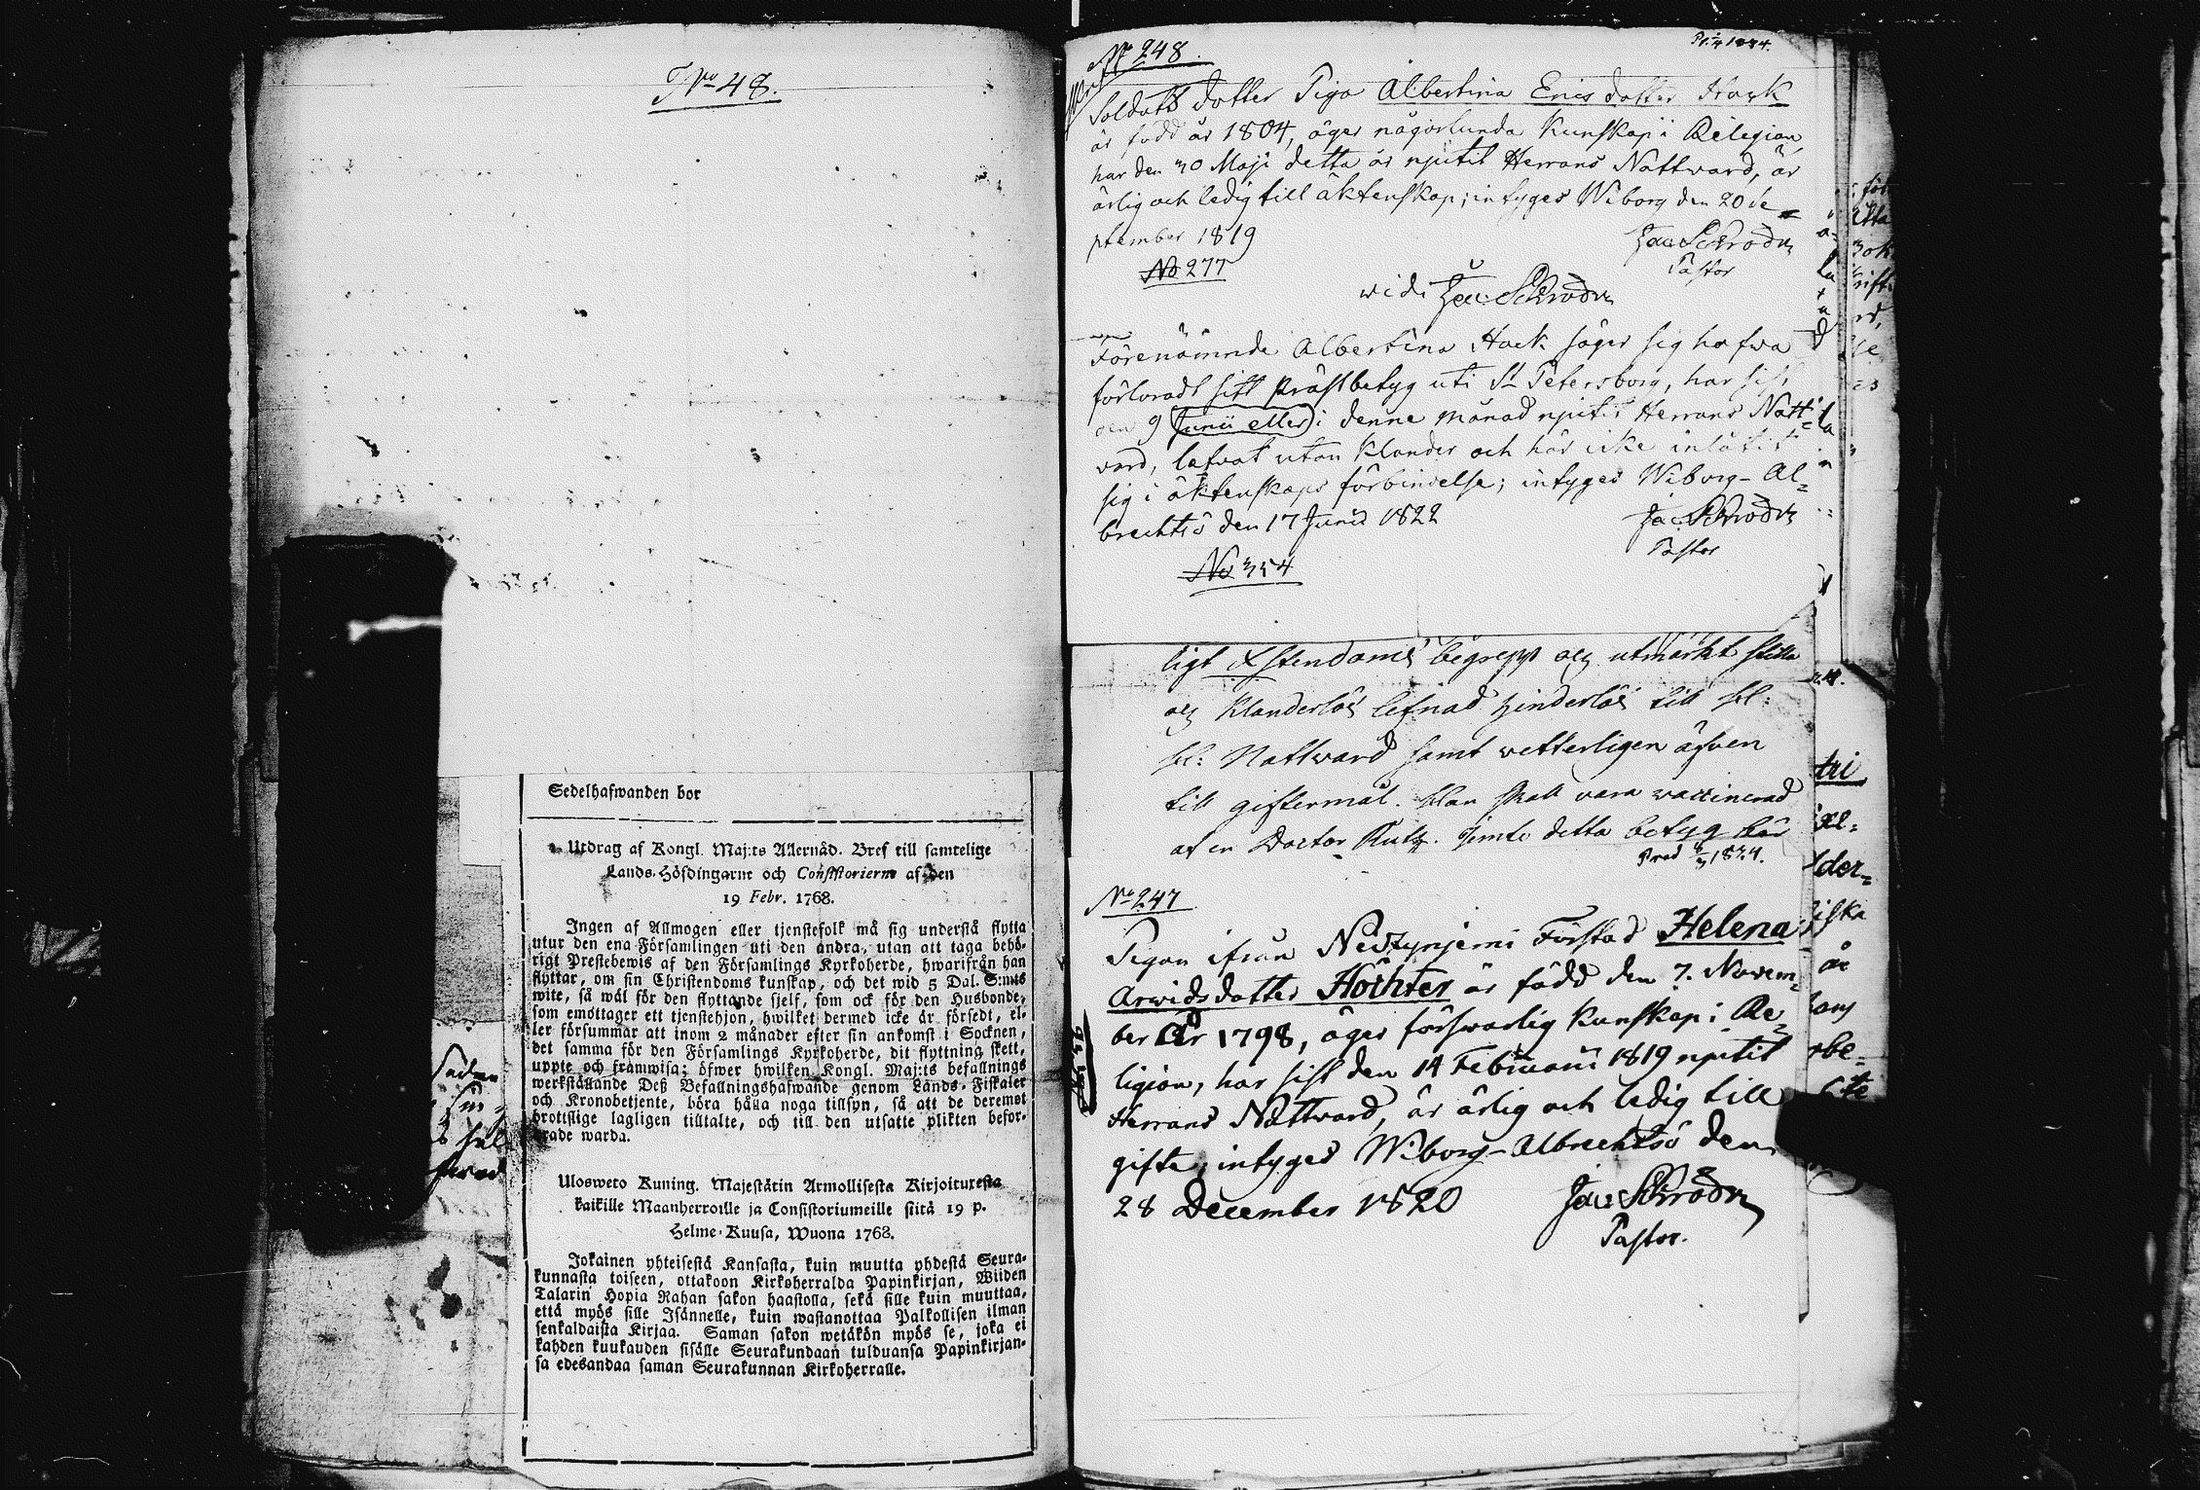 No 48.
Sedelhafwanden bor
Utdrag af Kongl. Maj:ts Allernåd. Bref till samtelige
Lands-Höfdingarne och Consistorierne af den
19 Febr. 1768.
Ingen af Allmogen eller tjenstefolk må sig understå flytta
utur den ena Församlingen uti den andra, utan att taga behö-
rigt Prestebewis af den Församlings Kyrkoherde, hwarifrån han
flyttar, om sin Christendoms kunskap, och det wid 5 Dal. S:mts
wite, så wäl för den flyttande sjelf, som ock för den Husbonde,
som emottager ett tjenstehjon, hwilket dermed icke är försedt, el-
ler försummar att inom 2 månader efter sin ankomst i Socknen,
det samma för den Församlings Kyrkoherde, dit flyttning skett,
uppte och framwisa; öfwer hwilken Kongl. Maj:ts befallnings
werkställande Deß Befallningshafwande genom Lands-Fiskaler
och Kronobetjente, böra hålla noga tillsyn, så att de deremot
brottslige lagligen tilltalte, och till den utsatte plikten befor-
rade warda.
Ulosweto Kuning. Majestätin Armollisesta Kirjoituxesta
kaikille Maanherroille ja Consistoriumeille siitä 19 p.
Helme-Kuusa, Wuona 1768.
Jokainen yhteisestä Kansasta, kuin muutta yhdestä Seura-
kunnasta toiseen, ottakoon Kirkoherralda Papinkirjan, Wiiden
Talarin Hopia Rahan sakon haastolla, sekä sille kuin muuttaa,
että myös sille Isännelle, kuin wastanottaa Palkollisen ilman
senkaldaista Kirjaa. Saman sakon wetäkön myös se, joka ei
kahden kuukauden sisälle Seurakundaan tulduansa Papinkirjan-
sa edesandaa saman Seurakunnan Kirkoherralle.
No 248.
Soldats dotter Piga Albertina Erics dotter Hack
är född år 1804, äger någorlunda kunskap i Religion,
har den 30 Maji detta år njutit Herrans Nattward, är
ärlig och ledig till äktenskap; intyges Wiborg den 20 Se=
ptember 1819 Jac: Schröder
Pastor
No 277
vidi Jac: Schröder
Förenämnde Albertina Hack säger sig hafwa
förloradt sitt prästbetyg uti St Petersborg, har sist
den 9 Junii eller i denne månad njutit Herrans Natt=
vard, lefvat utan klander och har icke inlåtit
sig i äktenskaps förbindelse; intyges Wiborg-Al=
brechtsö den 17 Junii 1822 Jac: Schröder
Pastor
No 354
ligt Xstendoms begrepp och utmärkt stilla
och klanderlös lefnad hinderlös till
Nattward samt vetterligen äfven
till giftermål. Han skall vara vaccinerad
af en Doctor. Jemte detta betyg bör
No 247
Pigan ifrån Neitzynjemi Förstad Helena
Arwids dotter Höchter är född den 7. Novem=
ber År 1798, äger förswarlig kunskap i Re=
ligion, har sist den 14 Februarii 1819 njutit
Herrans Nattward, är ärlig och ledig till
gifte; intyges Wiborg-Albrechtsö den
28 December 1820 Jac: Schröder
Pastor.